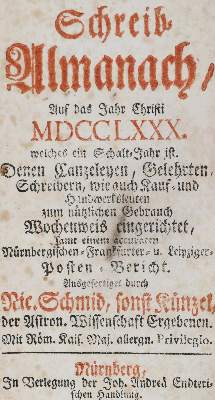 Schreib-
Almanach/
Auf das Jahr Christi
MDCCLXXX.
welches ein Schalt-Jahr ist.
Denen Canzeleyen, Gelehrten,
Schreibern, wie auch Kauf- und
Handwerksleuten
zum nützlichen Gebrauch
Wochenweis eingerichtet,
samt einem accuraten
Nürnbergischen-Frankfurter- u. Leipziger-
Posten-Bericht.
Ausgefertiget durch
Nic. Schmid, sonst Künzel,
der Astron. Wissenschaft Ergebenen.
Mit Röm. Kais. Maj. allergn. Privilegio.
Nürnberg,
In Verlegung der Joh. Andreä Endteri-
schen Handlung.